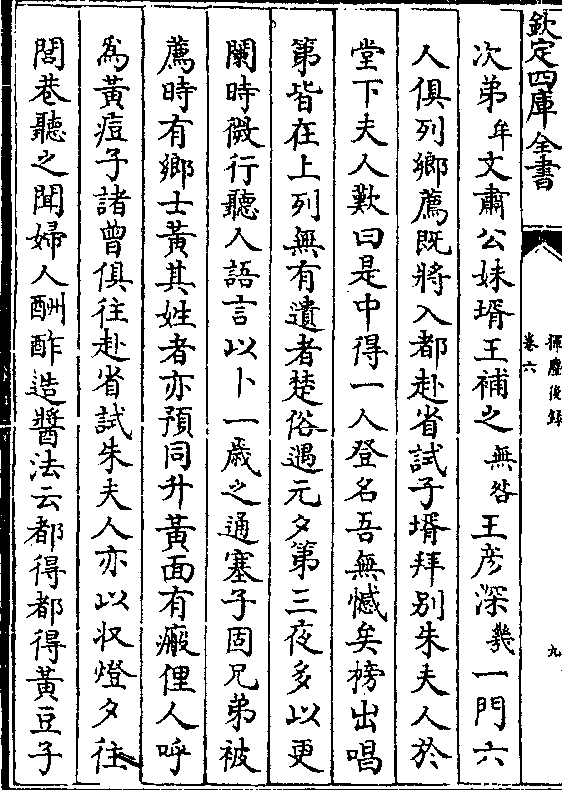 欽定四庫全書
揮麈後録
卷六
九
次弟牟文肅公妹壻王補之無咎王彦深㡬一門六
人俱列鄉薦既將入都赴省試子壻拜别朱夫人於
堂下夫人歎曰是中得一人登名吾無憾矣榜出唱
第皆在上列無有遺者楚俗遇元夕第三夜多以更
闌時微行聽人語言以卜一歲之通塞子固兄弟被
薦時有鄉士黃其姓者亦預同升黃面有瘢俚人呼
為黃痘子諸曾俱往赴省試朱夫人亦以收燈夕往
閭巷聽之聞婦人酬酢造醬法云都得都得黃豆子